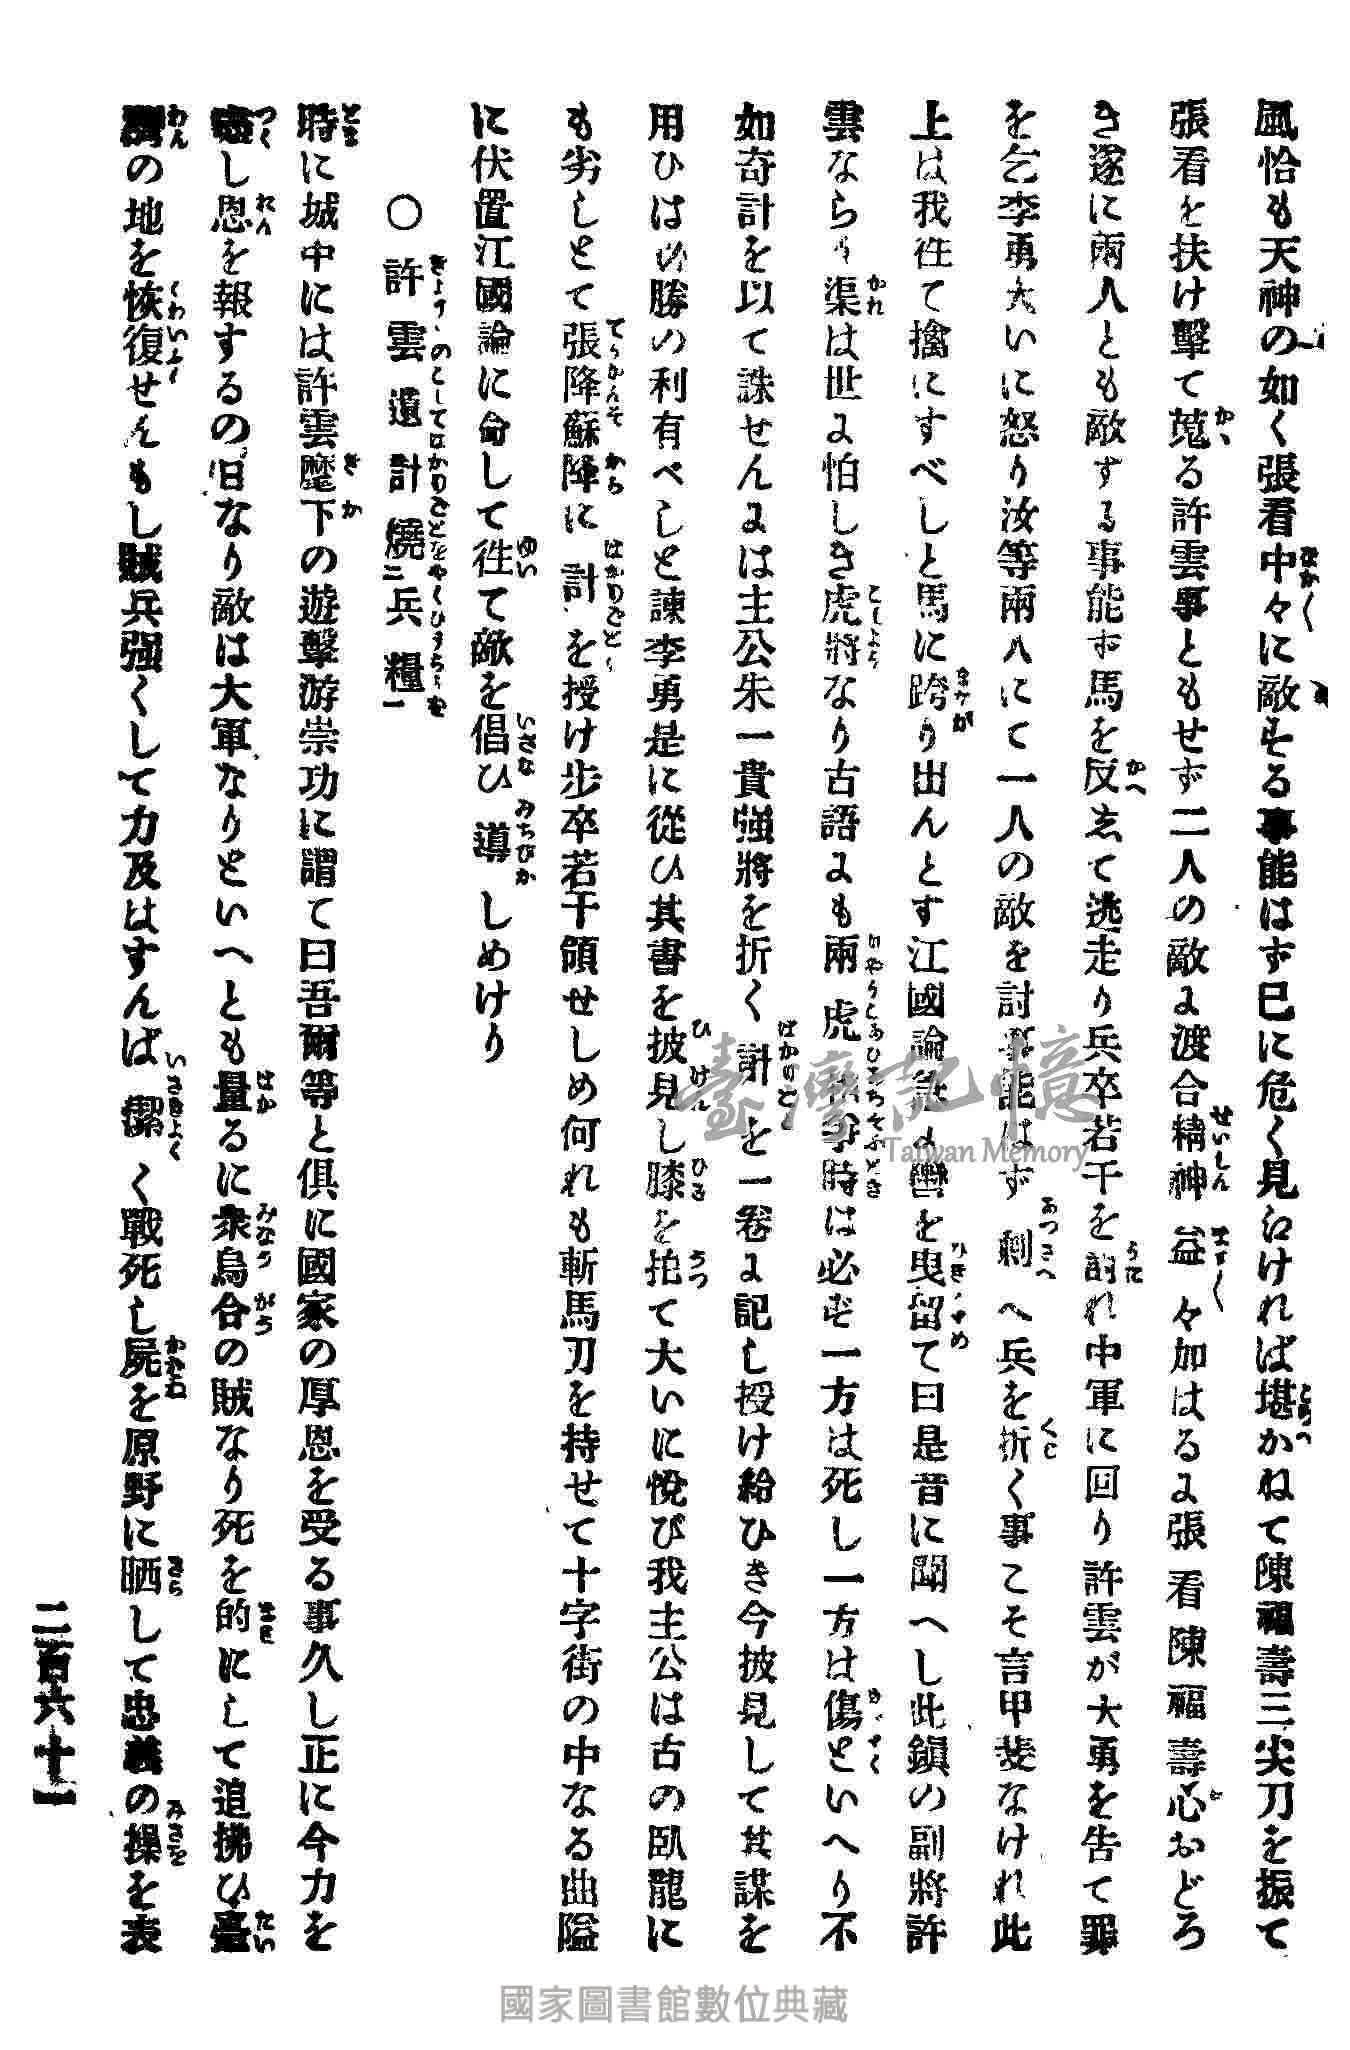 風恰も天神の如く張看中々に敵する事能はず已に危く見にければ堪かねて陳福壽三尖刀を振て
張看を扶け擊て蒐る許雲事ともせず二人の敵に渡合精神益々加はるに張看陳福壽心おどろ
き遂に兩人とも敵する事能ず馬を反して逃走り兵卒若干を討れ中軍に回り許雲が大勇を告て罪
を乞李勇大いに怒り汝等兩人にて一人の敵を討事能はず剩へ兵を折く事こそ言甲斐なけれ此
上は我往て擒にすべしと馬に跨り出んとす江國論急に轡を曳留て曰是昔に聞へし此鎭の副將許
雲ならり渠は世に怕しき虎將なり古語にも兩虎相爭時は必ず一方は死し一方は傷といへり不
如奇計を以て誅せんには主公朱一貴強將を折く謀を一卷に記し授け給ひき今披見して其謀を
用ひは必勝の利有べしと諫李勇是に從ひ其書を披見し膝を拍て大いに悅び我主公は古の臥龍に
も劣しとて張降蘇降に計を授け步卒若干領せしめ何れも斬馬刀を持せて十字街の中なる曲隘
に伏置江國論に命して往て敵を倡ひ導しめけり
〇許雲遺計燒二兵糧一
時に城中には許雲麾下の遊擊游崇功に謂て曰吾爾等と俱に國家の厚恩を受る事久し正に今力を
盡し恩を報するの旧なり敵は大軍なりといへとも量るに衆烏合の賊なり死を的にして追拂ひ臺
灣の地を恢復せんもし賊兵强くして力及はすんば潔く戰死し屍を原野に晒して忠義の操を表
二百六十一
臺灣記憶
Taiwan Memory
國家圖書館數位典藏